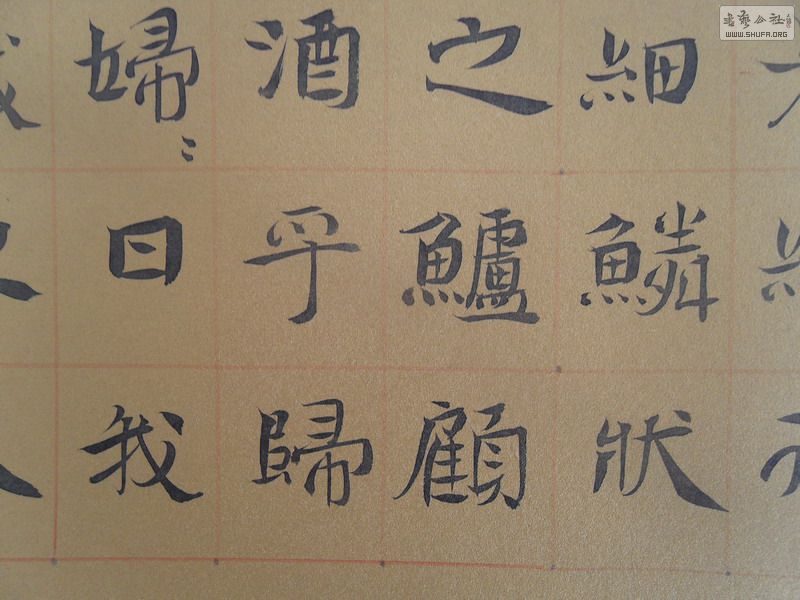 細鱗狀
之鱸顧
酒乎歸
婦〻曰我
书艺公社
WWW.SHUFA.ORG